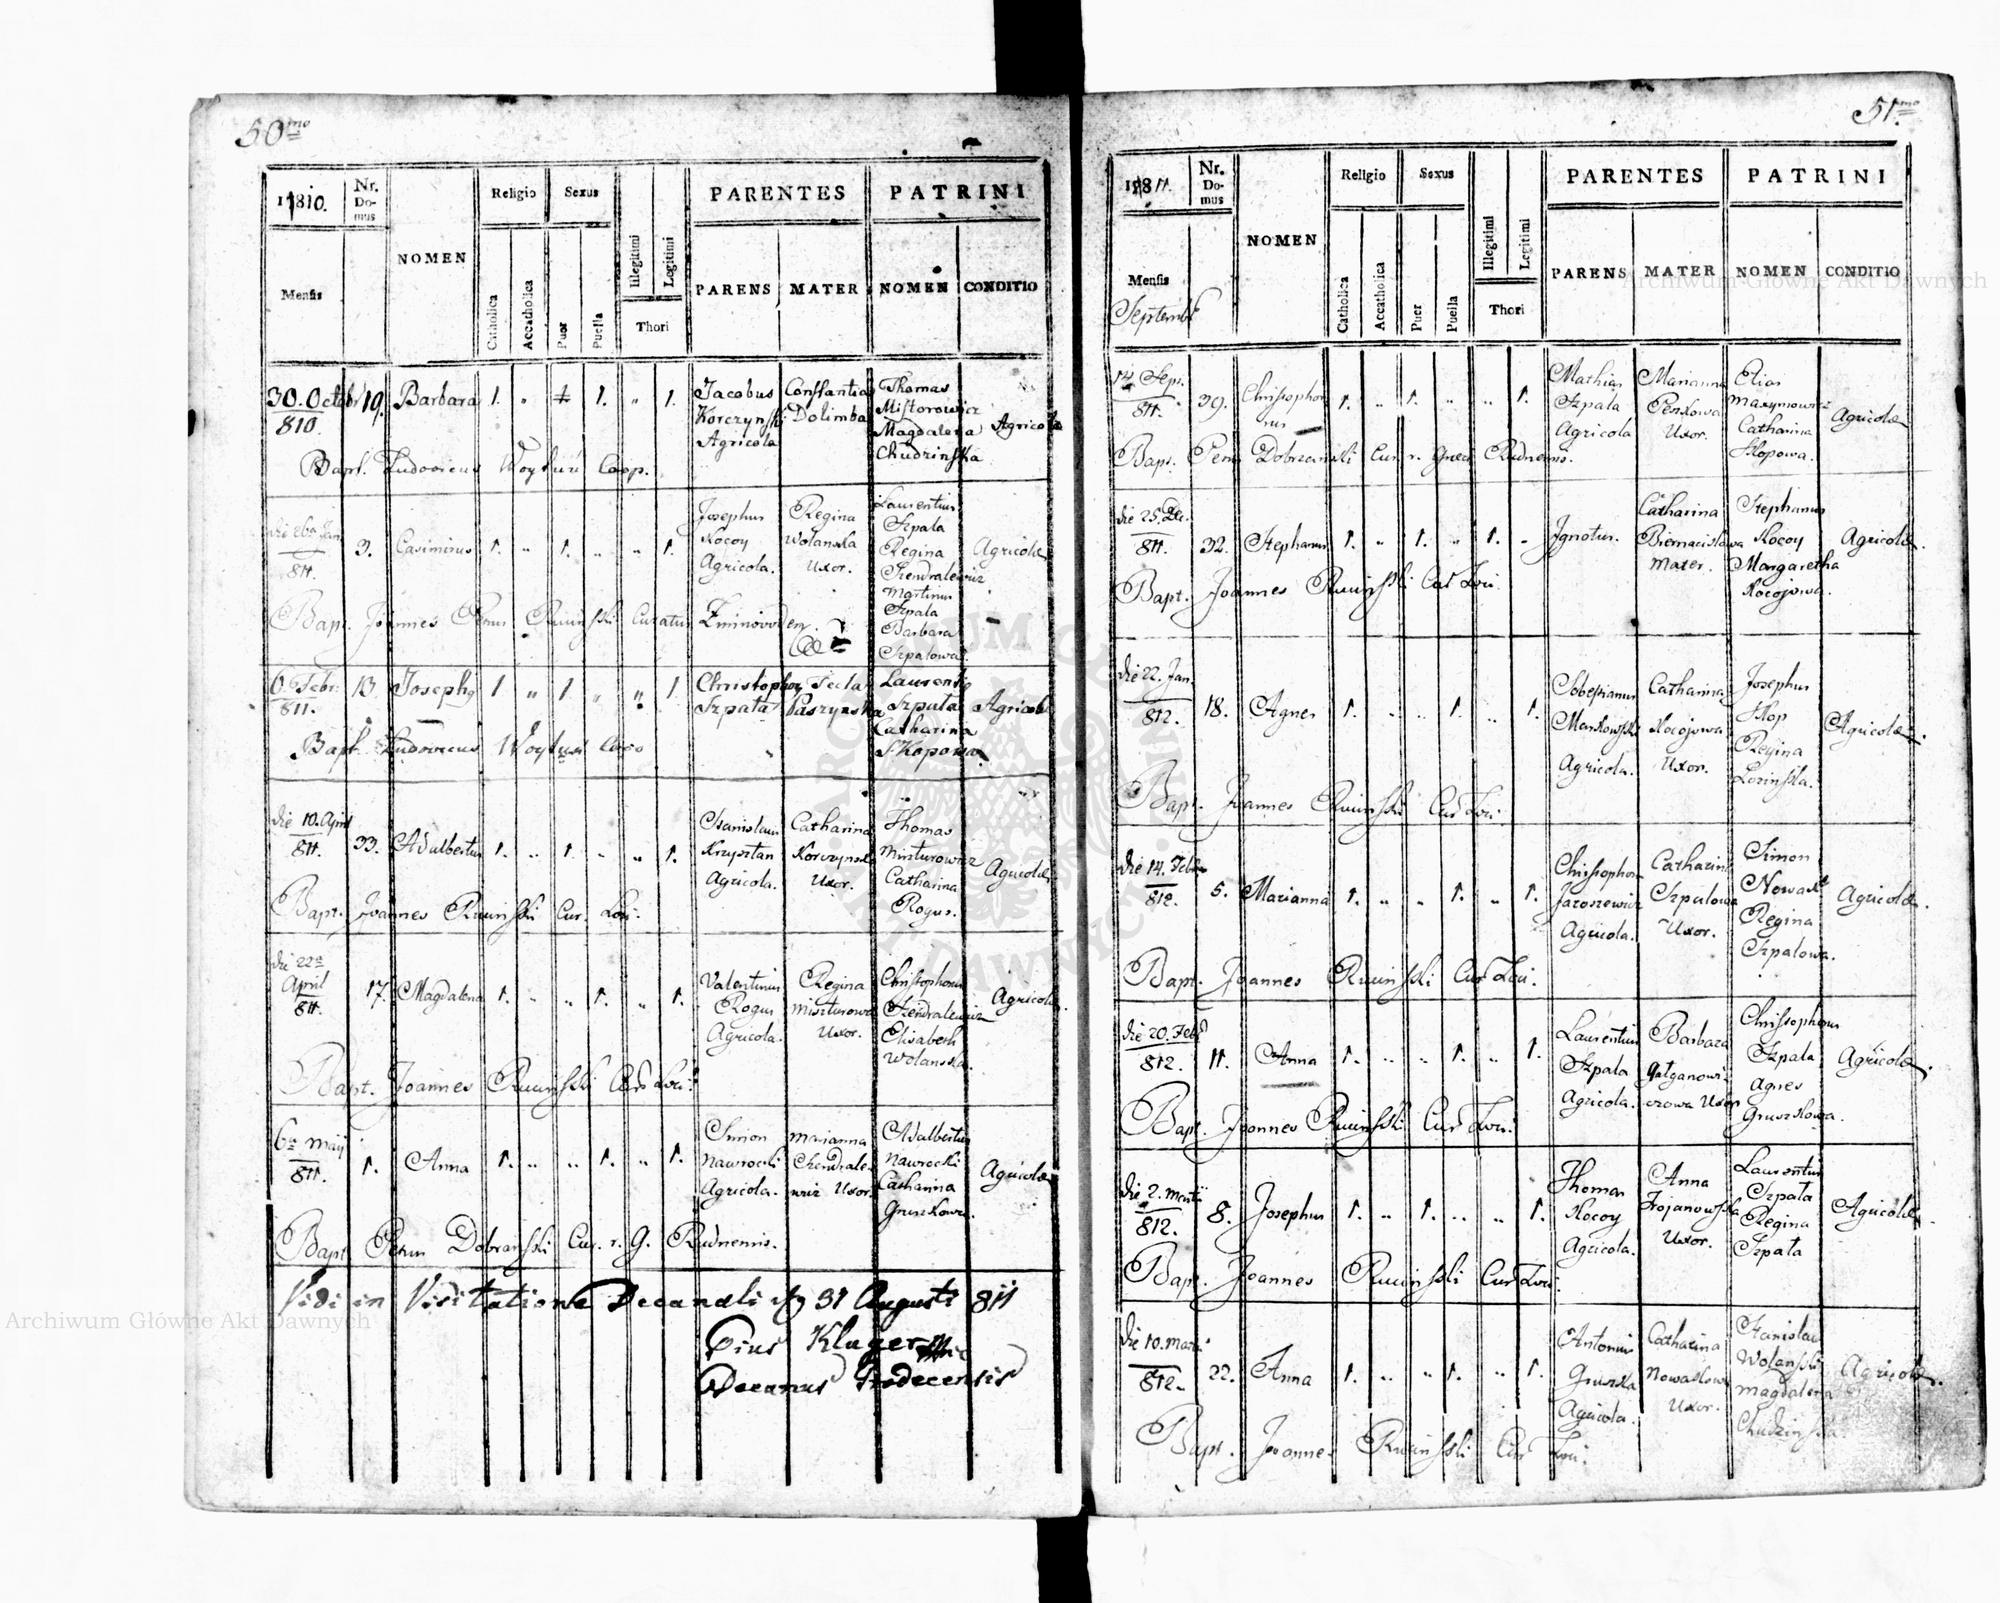 50mo
1810.
Nr. Domus
NOMEN
Religio
Sexus
PARENTES
PATRINI
Mensis
Catholica
Accatholica
Puer
Puella
Illegitimi
Legitimi
Thori
PARENS
MATER
NOMEN
CONDITIO
30. Octobr 810. 19. Barbara 1. " 1. " 1.
Jacobus Korczynski Agricola
Constantia Dolimba
Thomas Misztorowicz Magdalena Chudzinska
Agricolae
Bapt. Ludovicus Woytusi Coop.
die 26a Jan 811. 3. Casimirus 1. " 1. " " 1.
Josephus Kocoy Agricola.
Regina Wolanska Uxor.
Laurentius Szpala Regina Szendralewicz Martinus Szpala Barbara Szpalowa.
Agricolae
Bapt. Joannes Rucinski Curatus
6. Febr. 811. 13. Josephg 1 " 1 " " 1
Christophor Szpala
Tecla Paszynska
Laurenti Szpula Catharina Skopowa
Agricol
Bapt. Ludovicus Woytusi Coop
die 10. April 811. 33. Adalbertus 1. " 1. " " 1.
Stanislaus Krzysztan Agricola.
Catharina Korczynska Uxor.
Thomas Miszturowicz Catharina Rogus.
Agricolae
Bapt. Joannes Rucinski Cur. Loci.
die 22a April 811. 17. Magdalena 1. " " 1. " 1.
Valentinus Rogus Agricola.
Regina Miszturowa Uxor.
Christophorus Szendralewicz Elisabeth Wolanska.
Agricolae
Bapt. Joannes Rucinski Cur Loci.
6a Maij 811. 1. Anna 1. " " 1. " 1.
Simon Nawrocki Agricola.
Marianna Chendralewicz Uxor.
Adalbertus Nawrocki Catharina Gruszkowa.
Agricolae
Bapt Petrus Dobrzanski Cur. r. G. Rudnensis.
Vidi in Visitatione Decanali 31 Augusti 811
Pius Kluger
Decanus Grodecensis
51mo
1811.
Nr. Domus
NOMEN
Religio
Sexus
PARENTES
PATRINI
Mensis
Septembr
Catholica
Accatholica
Puer
Puella
Illegitimi
Legitimi
Thori
PARENS
MATER
NOMEN
CONDITIO
14 Sept. 811. 39. Chrissophorus 1. " 1. " " 1.
Mathias Szpala Agricola
Marianna Penkowa Uxor.
Elias Maxymowicz Catharina Skopowa.
Agricolae
Bapt. Petrus Dobrzanski Cur. r. Graeci Rudnensis.
die 25. De. 811. 32. Stephanus 1. " 1. " 1. "
Ignotus.
Catharina Mater.
Stephanus Kocoy Margaretha Kocojowa.
Agricolae.
Bapt. Joannes Rucinski Cur Loci
die 22. Jan. 812. 18. Agnes 1. " " 1. " 1.
Sobestianus Mankowski Agricola.
Catharina Kocojowa Uxor.
Josephus Skop Regina Losinska.
Agricolae.
Bapt. Joannes Rucinski Cur Loci
die 14. Febr 812. 5. Marianna 1. " " 1. " 1.
Chrissophorus Jaroszewicz Agricola.
Catharina Szpulowa Uxor.
Simon Nowak Regina Szpalowa.
Agricolae.
Bapt. Joannes Rucinski Cur Loci.
die 20. Febr 812. 11. Anna 1. " " 1. " 1.
Laurentius Szpala Agricola.
Barbara Galganowiczowa Uxor
Chrissophorus Szpala Agnes Gruszkowa.
Agricolae.
Bapt. Joannes Rucinski Cur Loci.
die 2. Martii 812. 8. Josephus 1. " 1. " " 1.
Thomas Kocoy Agricola.
Anna Trojanowska Uxor.
Laurentius Szpala Regina Szpala
Agricolae
Bapt. Joannes Rucinski Cur Loci.
die 10. Mart. 812. 22. Anna 1. " " 1. " 1.
Antonius Gruszka Agricola.
Catharina Nowakowa Uxor.
Stanislaus Wolanski Magdalena Chudzinska
Agricolae.
Bapt. Joannes Rucinski Cur Loci.
Archiwum Główne Akt Dawnych
Archiwum Główne Akt Dawnych
ARCHIWUM GŁÓWNE AKT DAWNYCH